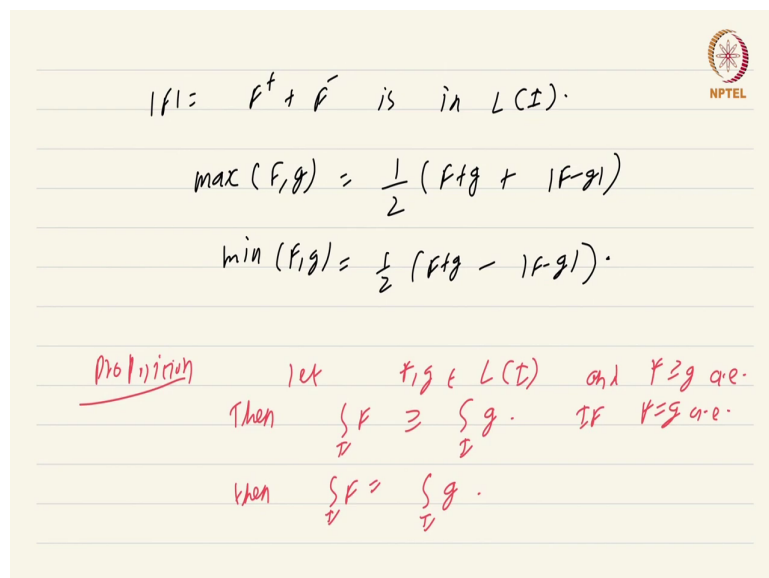 NPTEL
|F| = F⁺ + F⁻ is in L(I).
max(F,g) = 1/2 (F+g + |F-g|)
min(F,g) = 1/2 (F+g - |F-g|).
Proposition let F,g ∈ L(I) and F≥g a.e.
Then ∫_I F ≥ ∫_I g. IF F=g a.e.
then ∫_I F = ∫_I g.